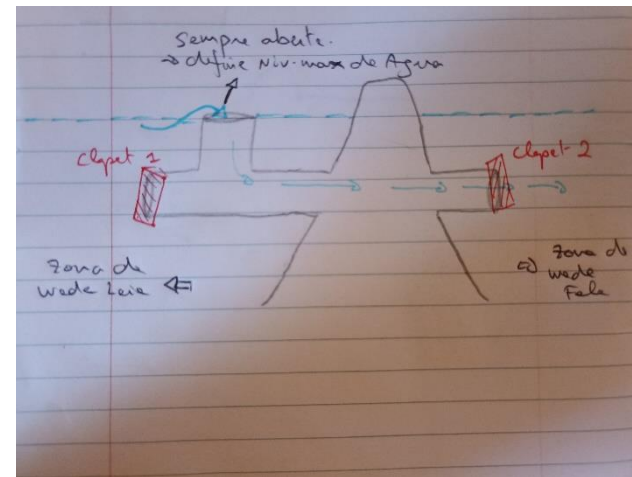 Sempre aberta.
→ define Niv. max de Agua
Clapet 1
Clapet 2
Zona de
wede Leia
Zona de
wede
Fele